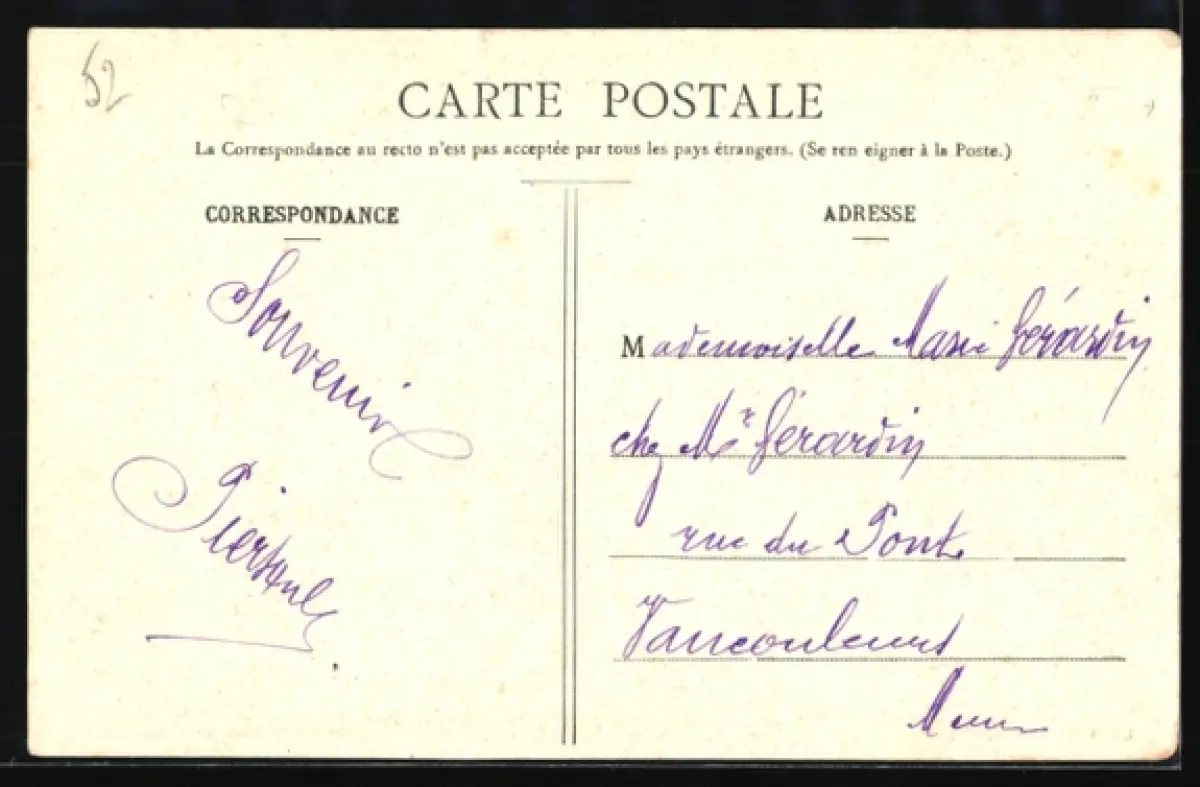 52
CARTE POSTALE
La Correspondance au recto n'est pas acceptée par tous les pays étrangers. (Se ren eigner à la Poste.)
CORRESPONDANCE
Souvenir
ADRESSE
Mademoiselle Marie Gérardin
chez Mr Gérardin
rue du Pont
Vaucouleurs
Meuse